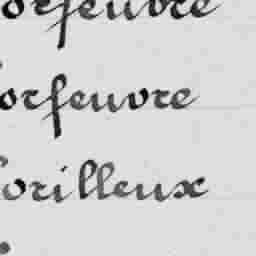 orfeuvre
orfeuvre
orilleux